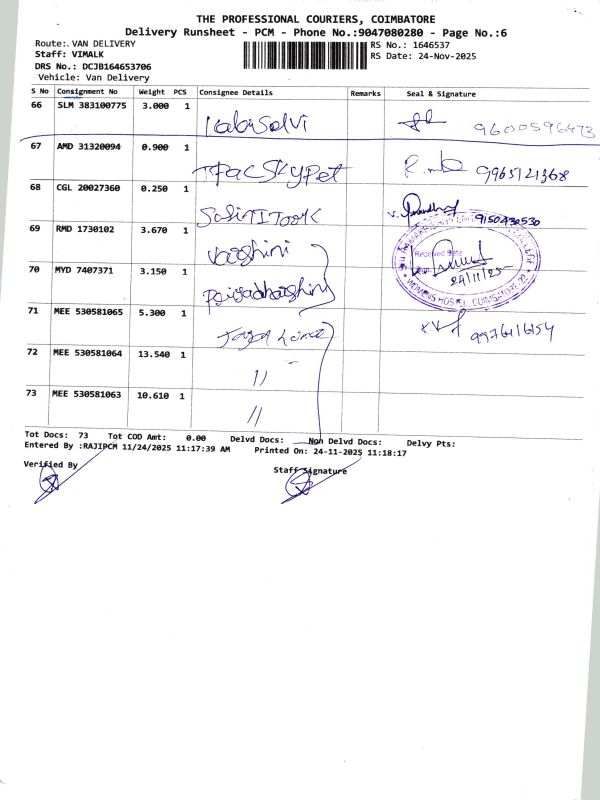 THE PROFESSIONAL COURIERS, COIMBATORE
Delivery Runsheet - PCM - Phone No.:9047080280 - Page No.:6
Route: VAN DELIVERY
RS No.: 1646537
Staff: VIMALK
RS Date: 24-Nov-2025
DRS No.: DCJB164653706
Vehicle: Van Delivery
S No Consignment No Weight PCS Consignee Details Remarks Seal & Signature
66 SLM 383100775 3.000 1 9600596473
67 AMD 31320094 0.900 1 9965121368
68 CGL 20027360 0.250 1 9150430530
69 RMD 1730102 3.670 1 Varshini
Received
WOMENS HOSTEL, COIMBATORE
70 MYD 7407371 3.150 1
24/11/25
71 MEE 530581065 5.300 1 9976116154
72 MEE 530581064 13.540 1 "
73 MEE 530581063 10.610 1 "
Tot Docs: 73 Tot COD Amt: 0.00 Delvd Docs: Non Delvd Docs: Delvy Pts:
Entered By :RAJIPCM 11/24/2025 11:17:39 AM Printed On: 24-11-2025 11:18:17
Verified By Staff Signature